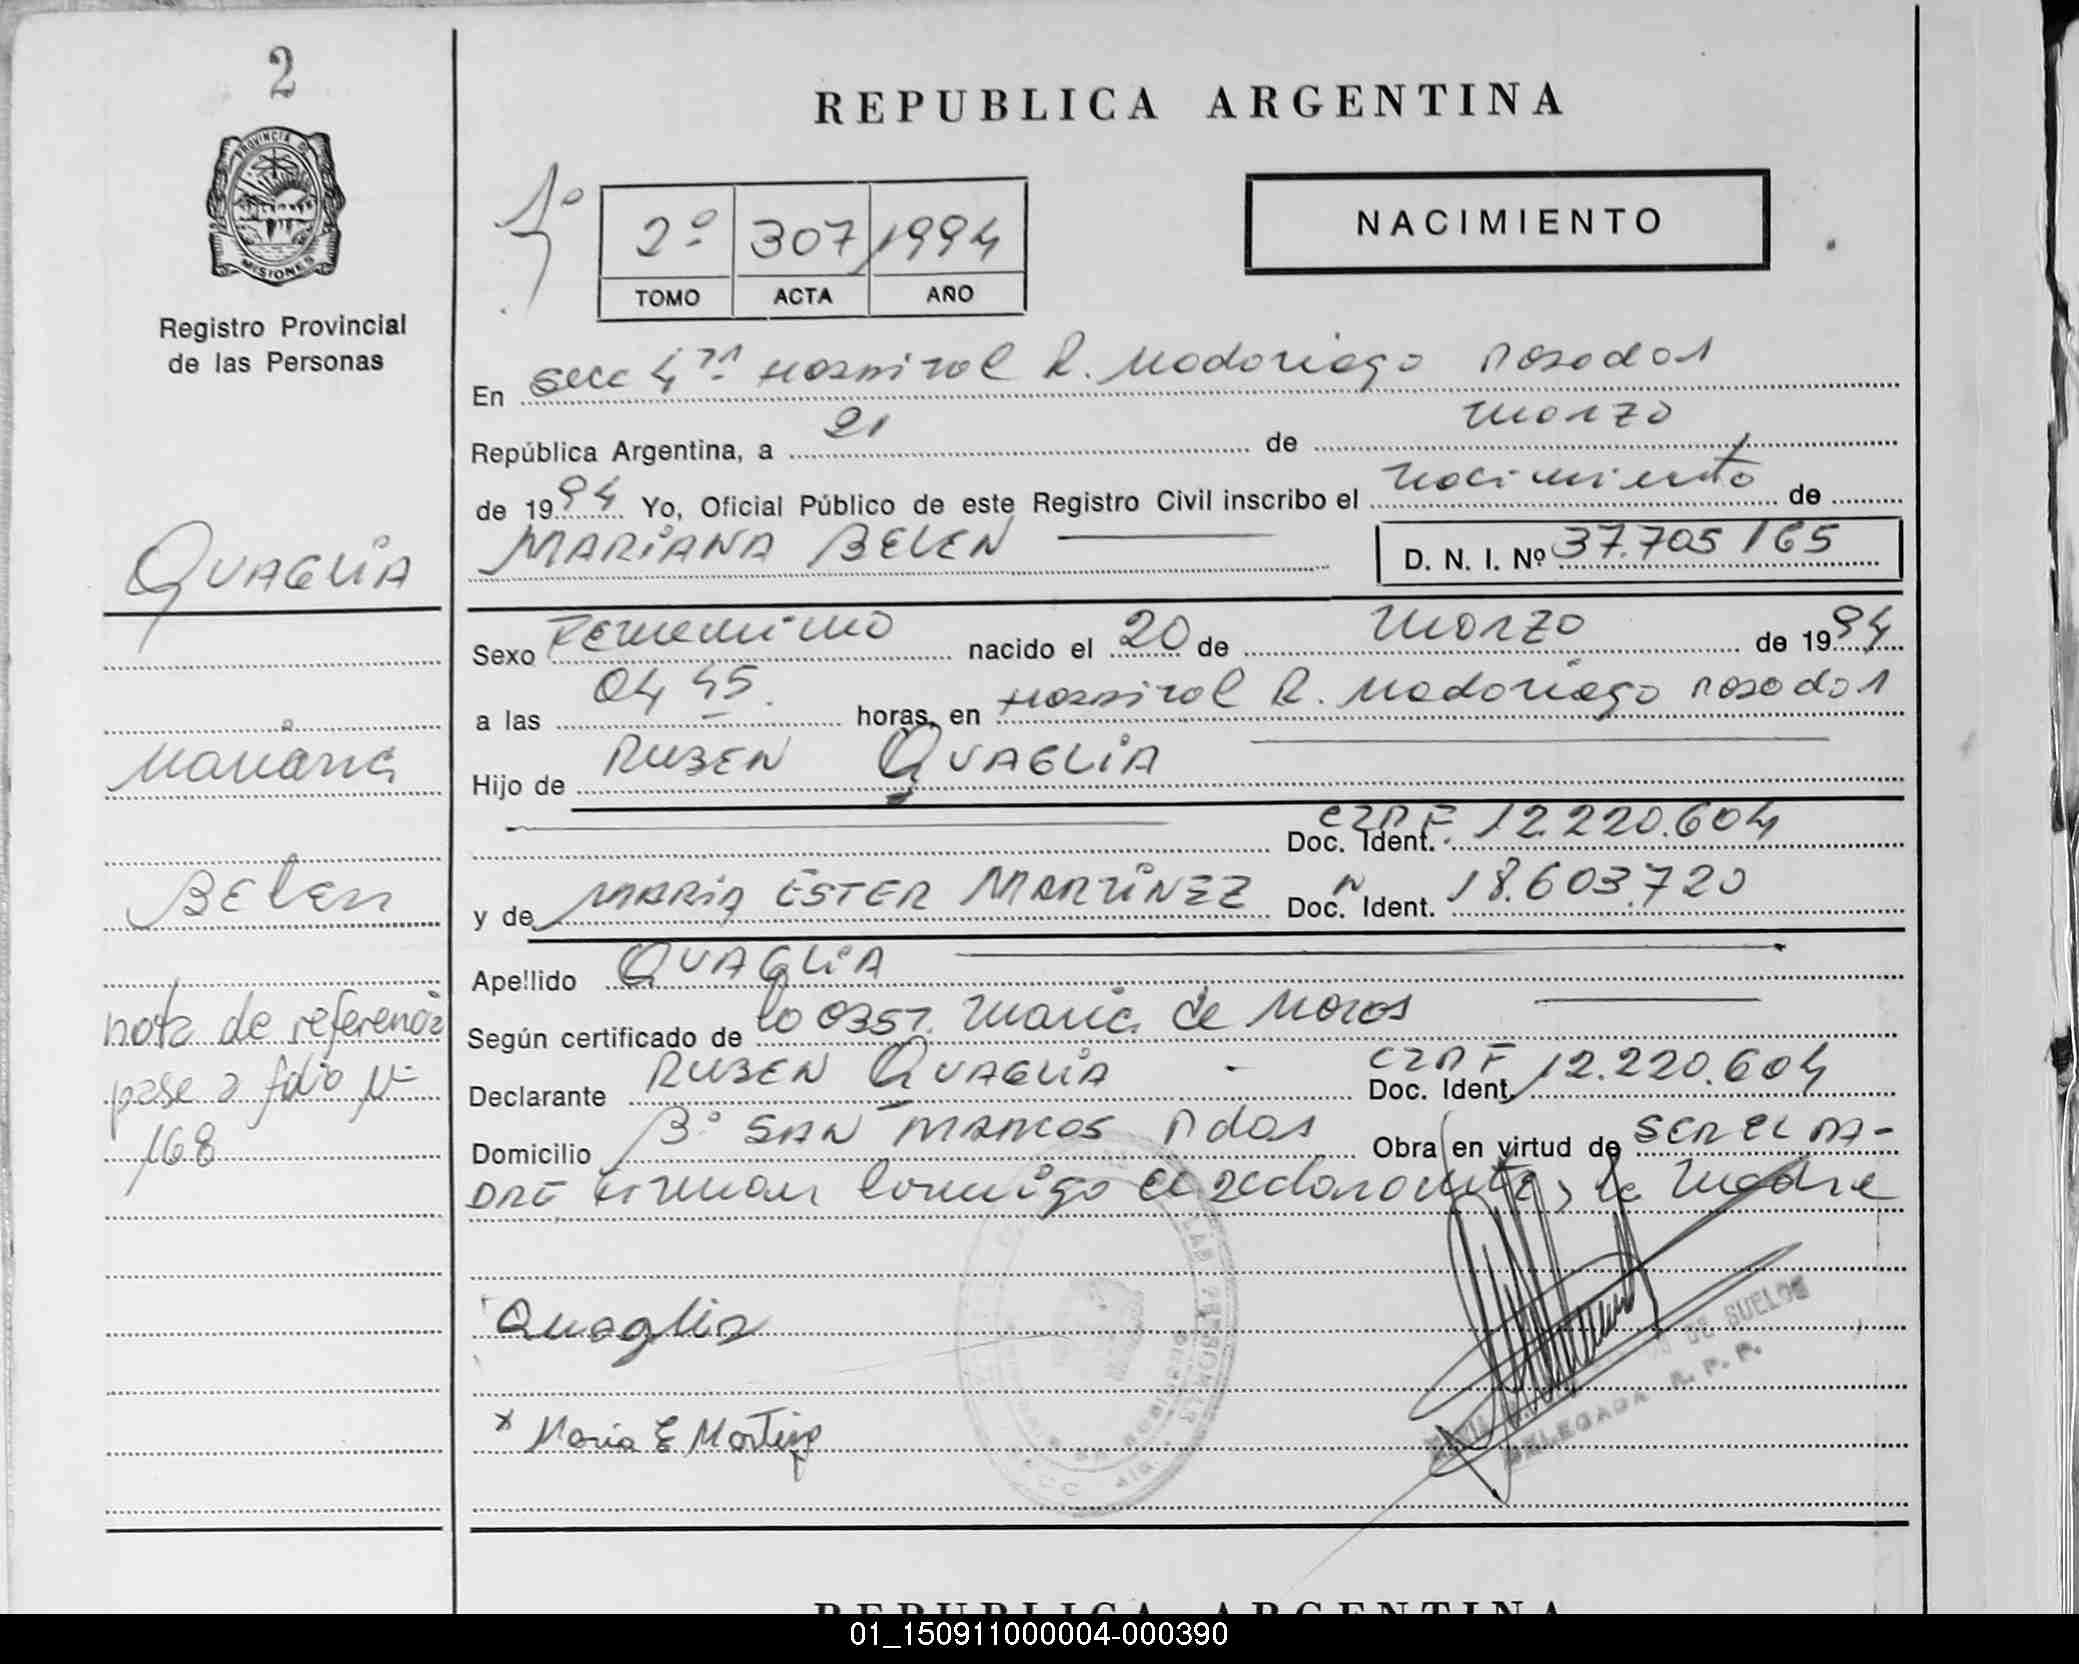 2
PROVINCIA DE
MISIONES
Registro Provincial
de las Personas
REPUBLICA ARGENTINA
1º
2º 307 1994
TOMO ACTA AÑO
NACIMIENTO
En Secc 4ta Hospital R. Madariaga Posadas
República Argentina, a 21 de Marzo
de 1994 Yo, Oficial Público de este Registro Civil inscribo el nacimiento de
MARIANA BELEN D. N. I. Nº 37.705 165
Sexo Femenino nacido el 20 de Marzo de 1994
a las 04 45 horas, en Hospital R. Madariaga Posadas
Hijo de RUBEN QUAGLIA
Doc. Ident. 12.220.604
y de MARIA ESTER MARTINEZ Doc. Ident. 18.603.720
Apellido QUAGLIA
Según certificado de Maria de
Declarante RUBEN QUAGLIA Doc. Ident. 12.220.604
Domicilio Bº SAN MARCOS Pdas Obra en virtud de SER EL PA-
DRE Firman conmigo el declarante y la Madre
QUAGLIA
Mariana
Belen
nota de referencia
pase a folio Nº
168
Quaglia
x Maria E Martinez
DE SUELDS
DELEGADA R. P. P.
REPUBLICA ARGENTINA
01_150911000004-000390